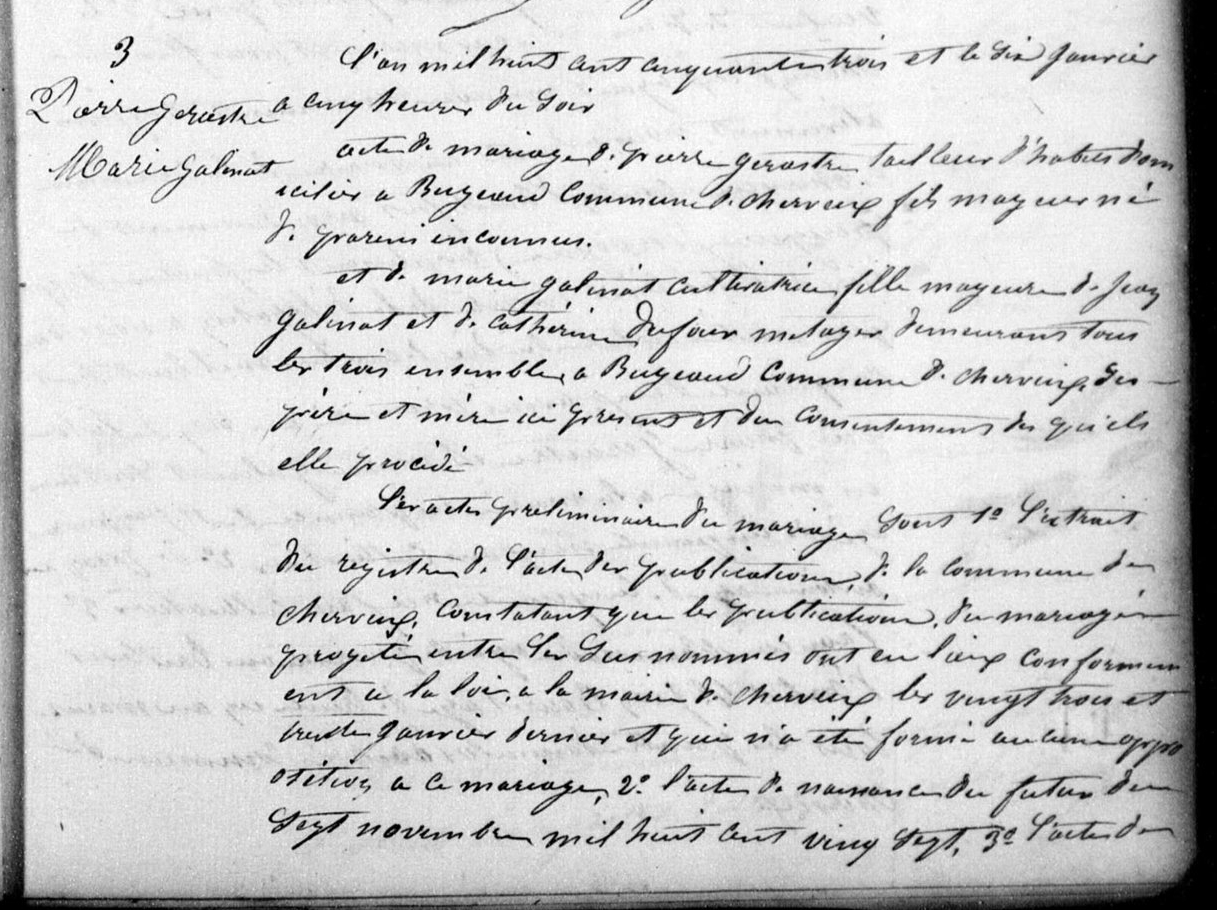 3
Pierre Gerastre
Marie Galinat
L'an mil huit cent cinquante trois et le six Janvier
a cinq heures du soir
acte de mariage de pierre gerastre tailleur d'habits dom
icilié a Bugeaud Commune de cherveix fils mageur né
de parens inconnus.
et de marie galinat cultivatrice fille mageure de Jean
galinat et de catherine dufour metayer demeurans tous
les trois ensemble a Bugeaud Commune de cherveix, ses
père et mère ici present et du consentement des quels
elle procède
Les actes preliminaire du mariage sont 1º l'extrait
du registre de l'acte des publications, de la commune de
cherveix, Constatant que les publications, du mariage
progeté entre les sus nommés ont eu lieux conformem
ent a la loi, a la mairie de cherveix les vingt trois et
trente janvier dernier et qui n'a été formé aucune oppo
osition a ce mariage, 2º l'acte de naissance du futur du
sept novembre mil huit cent vinq sept, 3º l'acte de